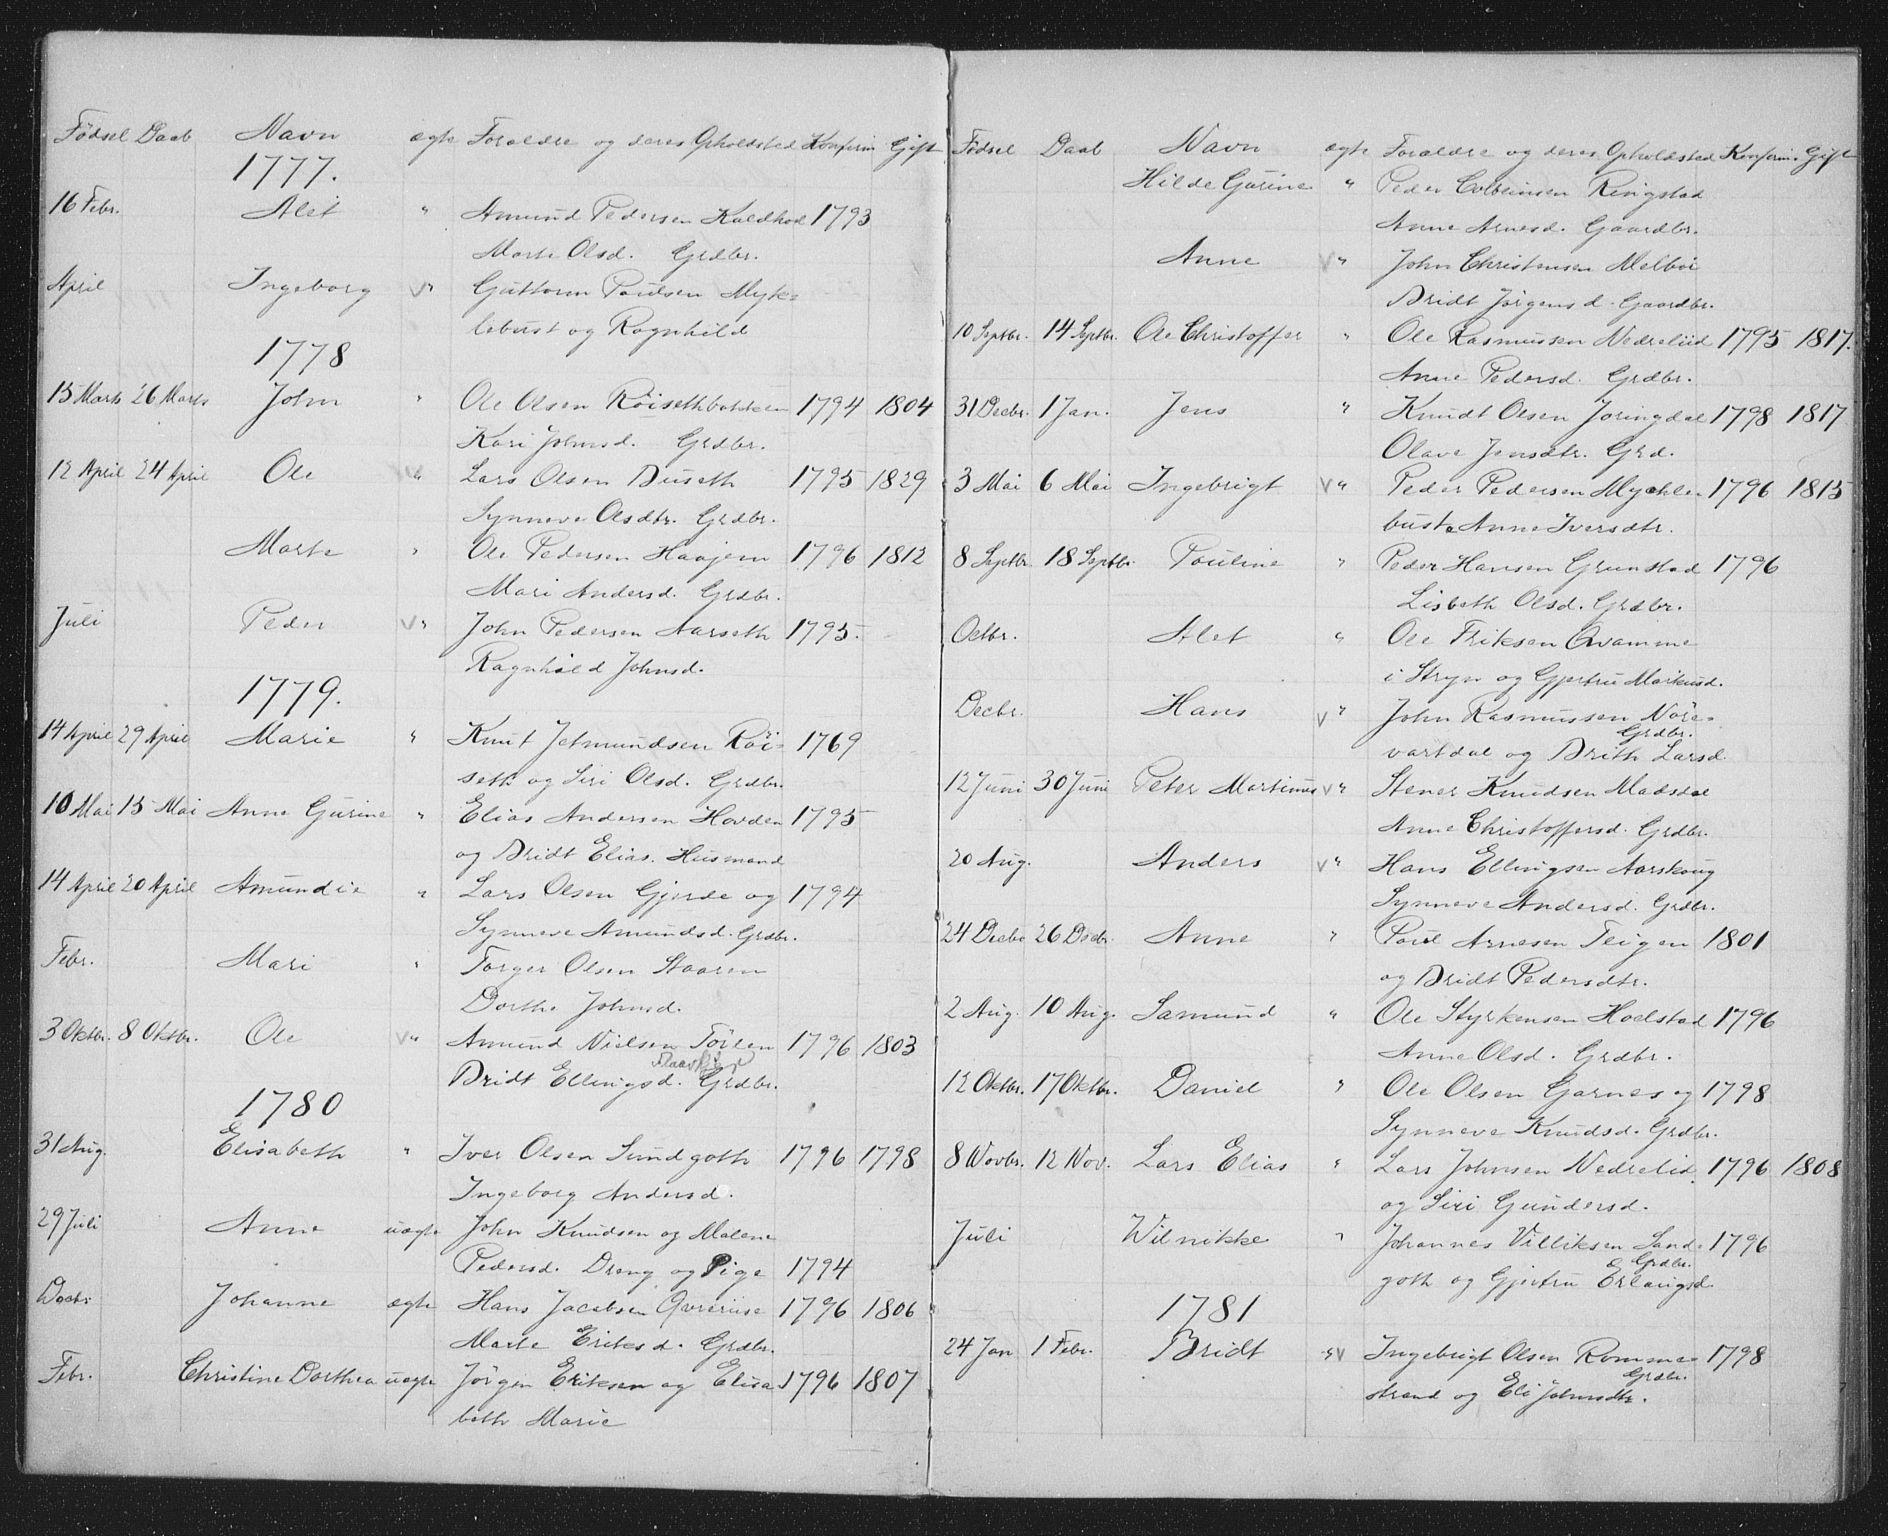 Fødsel Daab Navn ægte Forældre og deres Opholdsted Konfirm Gift
1777.
16 Febr. Alet " Amund Pedersen Kaldhol 1793
Marte Olsd. Grdbr.
April Ingeborg V " Guttorm Poulsen Myk-
lebust og Ragnhild
1778
15 Marts 26 Marts John " Ole Olsen Röisethbakken 1794 1804
Kari Johnsd. Grdbr.
12 April 24 April Ole V " Lars Olsen Buseth 1795 1829
Synneve Olsdtr. Grdbr.
Marte " Ole Pedersen Haajem 1796 1812
Mari Andersd. Grdbr.
Juli Peder V " John Pedersen Aarseth 1795.
Ragnhild Johnsd.
1779.
14 April 29 April Marie " Knut Jetmundsen Röi- 1769
seth og Siri Olsd. Grdbr.
10 Mai 15 Mai Anne Gurine " Elias Andersen Hovden 1795
og Bridt Elias. Husmand
14 April 20 April Amundie " Lars Olsen Gjerde og 1794
Synneve Amundsd. Grdbr.
Febr. Mari " Torger Olsen Staaren
Dorthe Johnsd.
3 Oktbr. 8 Oktbr. Ole V " Amund Nielsen Törlen 1796 1803
Bridt Ellingsd. Grdbr.
1780
31 Aug. Elisabeth " Iver Olsen Sundgoth 1796 1798
Ingeborg Andersd.
29 Juli Anne uægte John Knudsen og Malene
Pedersd. Dreng og Pige 1794
Decbr Johanne ægte Hans Jacobsen Qvreriise 1796 1806
Marte Eriksd. Grdbr.
Febr. Christine Dorthea uægte Jörgen Eriksen og Elisa- 1796 1807
beth Marie
Fødsel Daab Navn ægte Forældre og deres Opholdsted Konfirm. Gift
Hilde Gurine " Peder Colbeinsen Ringstad
Anne Arnesd. Gaardbr.
Anne V " John Christensen Melböe
Bridt Jörgensd. Gaardbr.
10 Septbr. 14 Septbr. Ole Christoffer " Ole Rasmussen Nedrelid 1795 1817.
Anne Pedersd. Grdbr.
31 Decbr. 1 Jan. Jens " Knudt Olsen Joringdal 1798 1817
Olave Jensdtr. Grd.
3 Mai 6 Mai Ingebrigt V " Peder Pedersen Mychle- 1796 1815
bust Anne Iversdtr.
8 Septbr. 18 Septbr. Pouline " Peder Hansen Grunstad 1796
Lisbeth Olsd. Grdbr.
Octbr. Alet " Ole Eriksen Qvamme
i Stryn og Gjertru Markusd.
Decbr. Hans V " John Rasmussen Nöre-
Grdbr.
vartdal og Brith Larsd
12 Juni 30 Juni Peter Martinus V " Stener Knudsen Madsdal
Anne Christoffersd. Grdbr.
20 Aug. Anders V " Hans Ellingsen Aarskoug
Synneve Andersd. Grdbr.
24 Decbr 26 Decbr. Anne " Poul Arnesen Teigen 1801
og Bridt Pedersdtr.
2 Aug. 10 Aug. Samund " Ole Styrkensen Hoelstad 1796
Anne Olsd. Grdbr.
12 Oktbr. 17 Oktbr. Daniel " Ole Olsen Garnes og 1798
Synneve Knudsd. Grdbr.
8 Novbr. 12 Nov. Lars Elias " Lars Johnsen Nedrelid 1796 1808
og Siri Gundersd.
Juli Wilnikke " Johannes Villiksen Sand- 1796
Grdbr.
goth og Gjertru Erlangsd
1781
24 Jan 1 Febr. Bridt " V Ingebrigt Olsen Romme- 1798
Grdbr.
strand og Eli Johnsdtr.